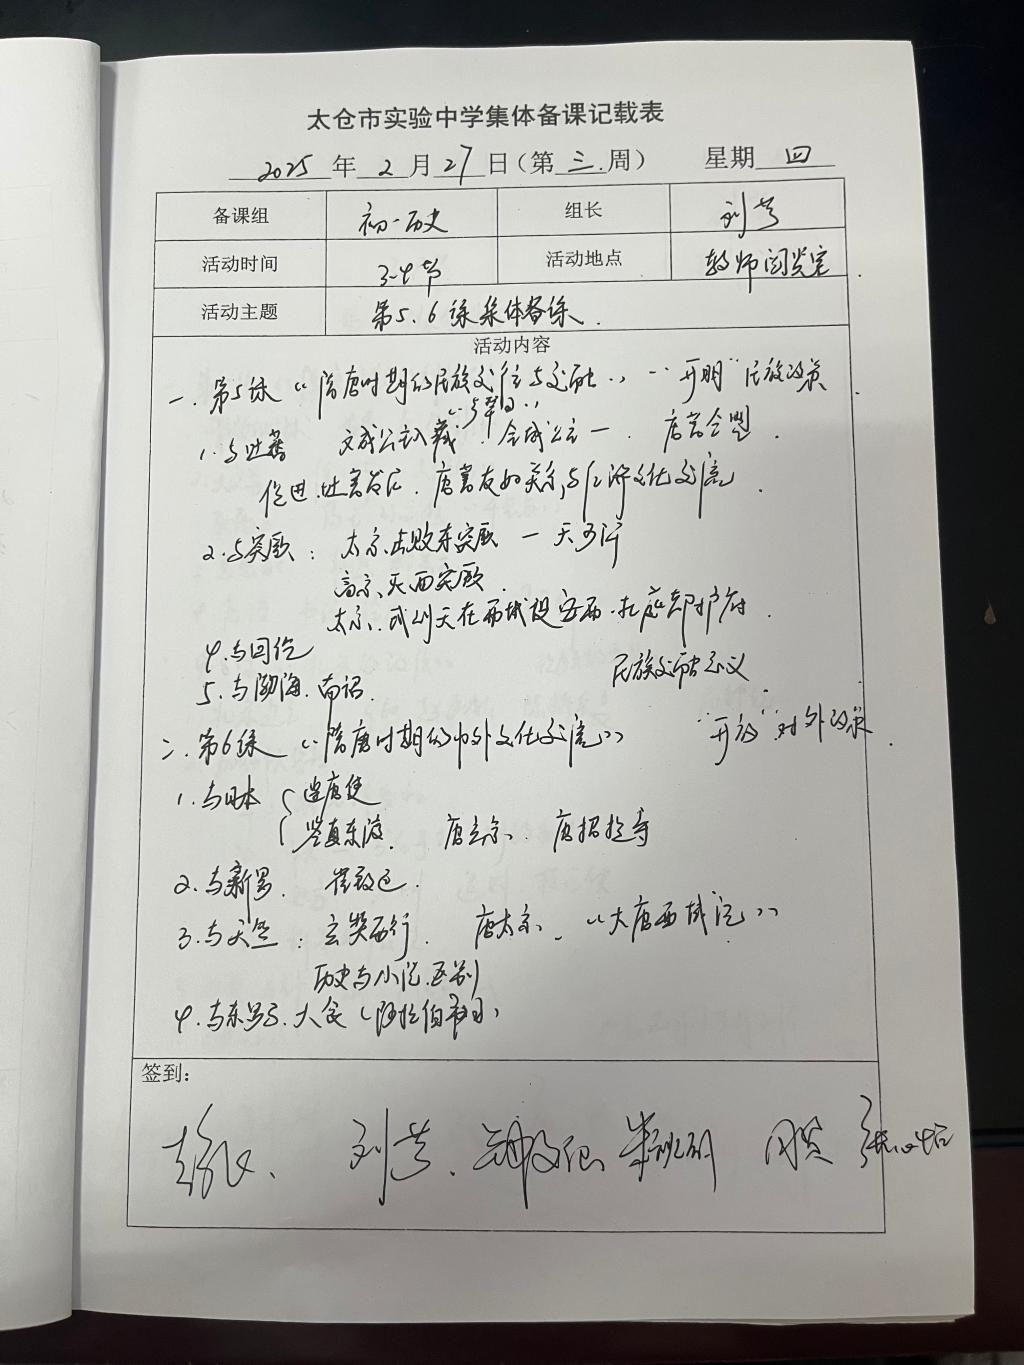 太仓市实验中学集体备课记载表
2025 年 2 月 27 日（第 三 周） 星期 四
备课组 初一历史 组长 刘芳
活动时间 3-4节 活动地点 教师阅览室
活动主题 第5.6课集体备课.
活动内容
一.第5课《隋唐时期的民族交往与交融》 "开明"民族政策
1.与吐蕃 文成公主入藏 . 金城公主一 . 唐蕃会盟 .
促进.吐蕃发展.唐蕃友好关系,与经济文化交流 .
2.与突厥： 太宗击败东突厥 — 天可汗
高宗、灭西突厥.
太宗、武则天在西域设安西.北庭都护府 .
4.与回纥
5.与渤海.南诏. 民族交融意义
二.第6课《隋唐时期的中外文化交流》 "开放"对外政策 .
1.与日本 { 遣唐使
鉴真东渡. 唐玄宗、 唐招提寺
2.与新罗. 崔致远.
3.与天竺：玄奘西行. 唐太宗、《大唐西域记》
历史与小说.区别
4.与东罗马.大食（阿拉伯帝国）
签到：
刘芳.